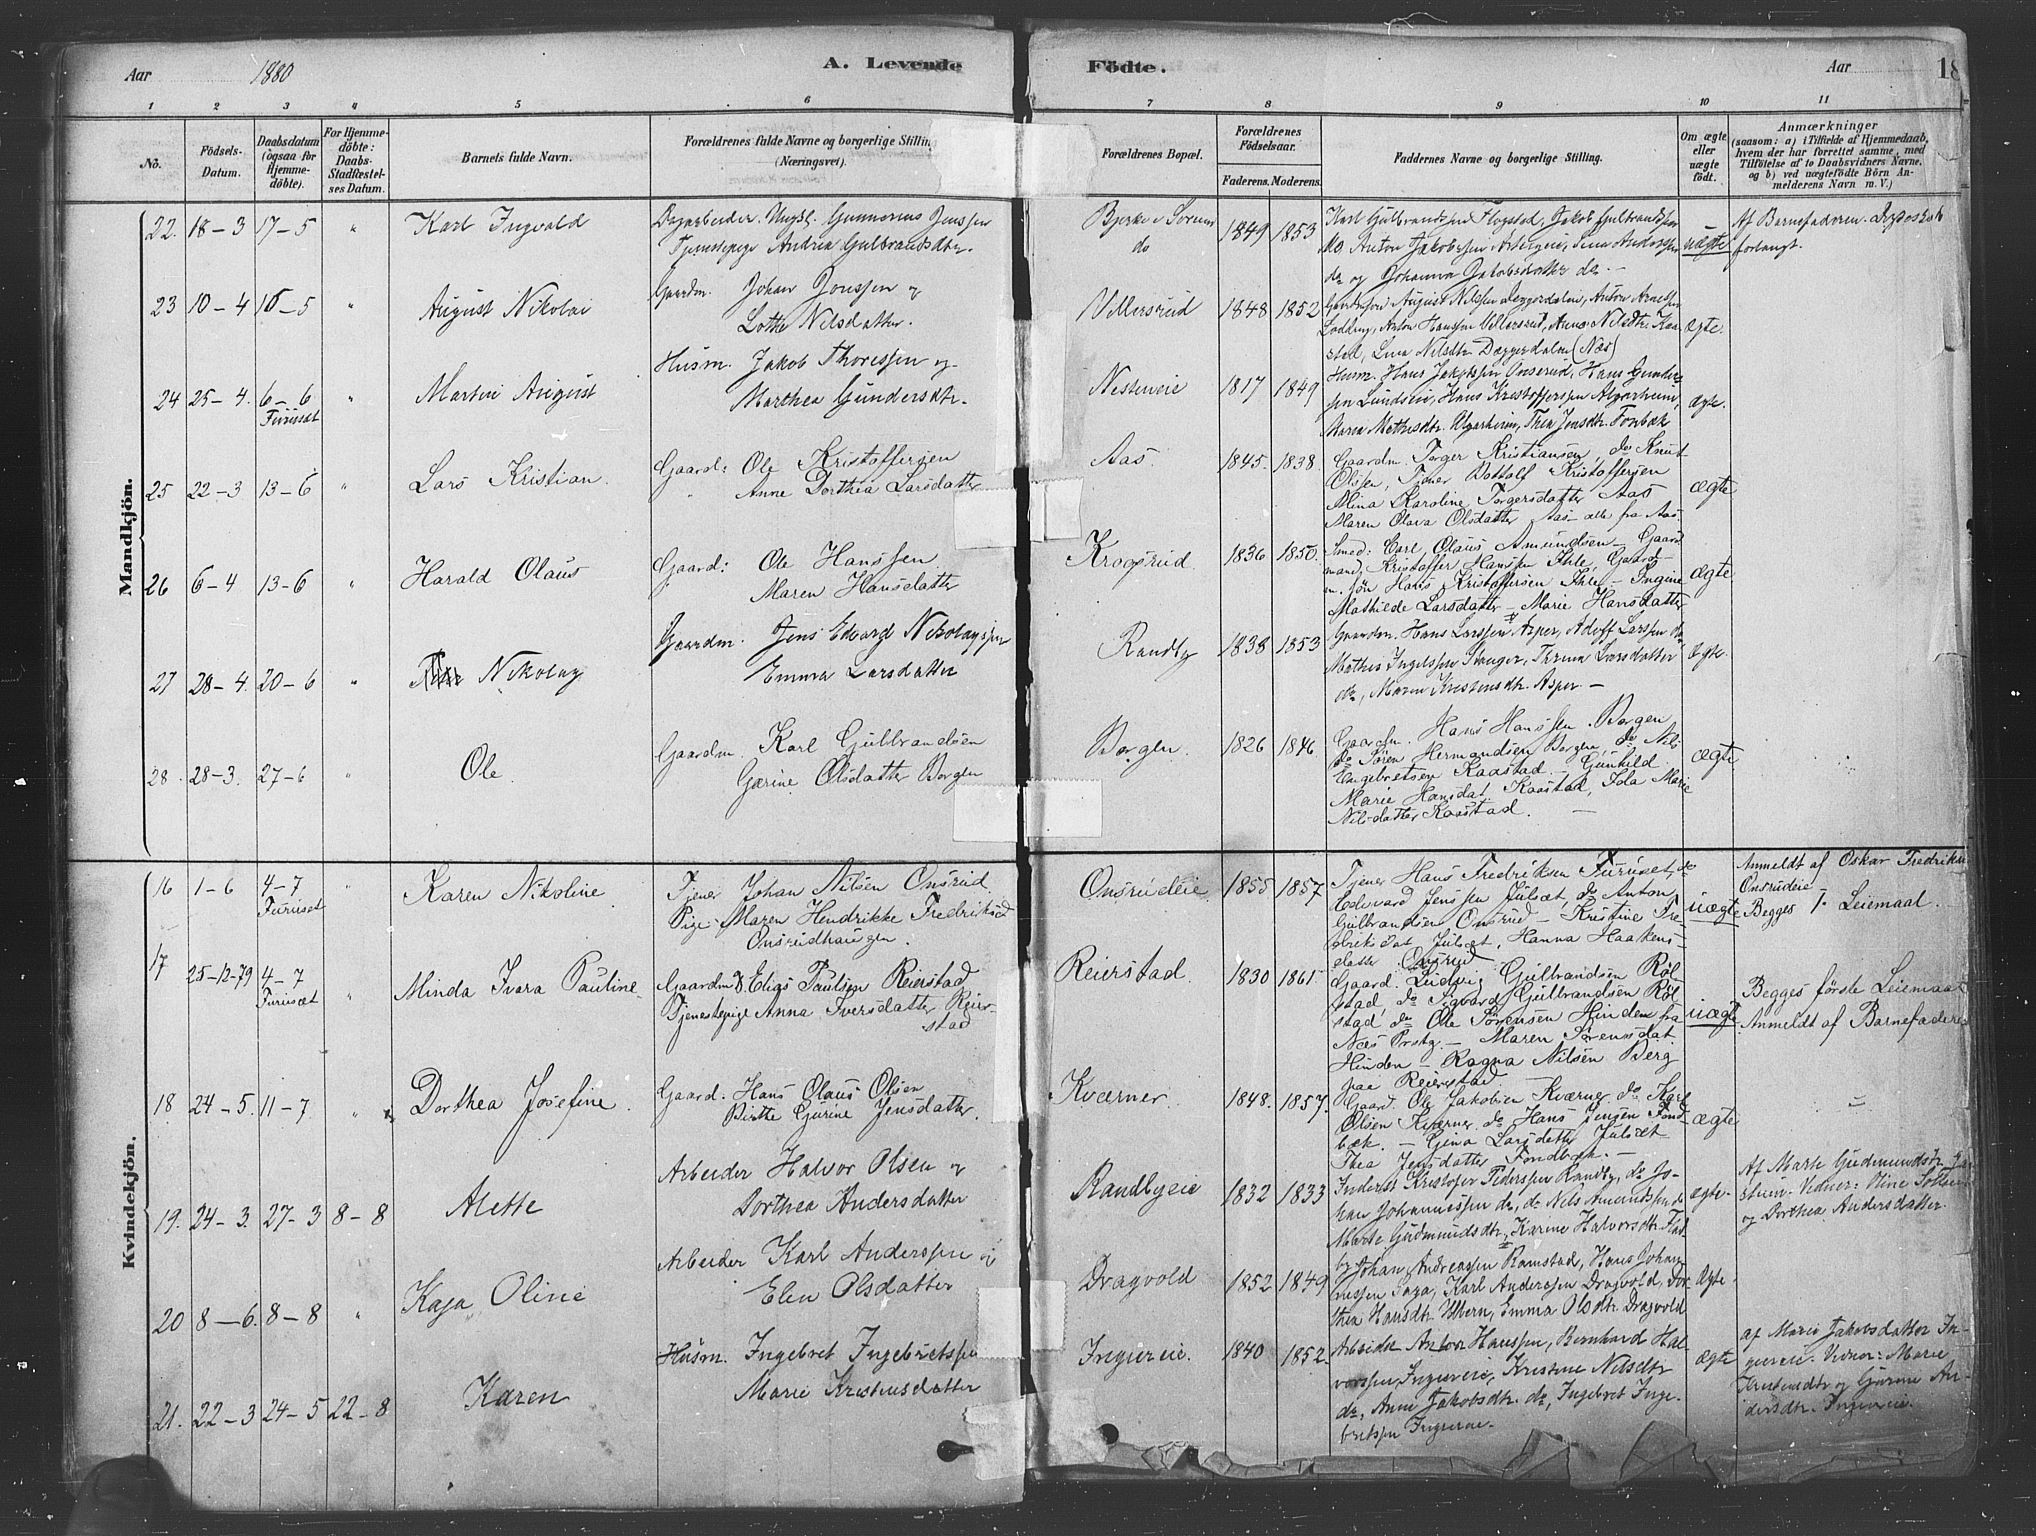 Aar 1880 A. Levende Födte. Aar 18
1 2 3 4 5 6 7 8 9 10 11
No. Födsels-Datum. Daabsdatum (ogsaa for Hjemmedöbte). For Hjemmedöbte: Daabs-Stadfæstelses Datum. Barnets fulde Navn. Forældrenes fulde Navne og borgerlige Stilling (Næringsvei). Forældrenes Bopæl. Forældrenes Födselsaar. Faderens. Moderens. Faddernes Navne og borgerlige Stilling. Om ægte eller uægte födt. Anmærkninger
(saasom: a) i Tilfælde af Hjemmedaab, hvem der har forrettet samme, med Tilföielse af to Daabsvidners Navne. og b) ved uægtefödte Börn Anmelderens Navn m. V.)
Mandkjön.
22. 18-3 17-5 " Karl Ingvald
Dagarbeider. Ungk. Gunnerius Jenssen
Tjenestepige Andrea Gulbrandsdtr.
Bjerke i Sörum
do
1849 1853
Karl Gulbrandssen Flogstad, Jakob Gulbrandssen
do og Johanna Jakobsdatter do. -
uægte
Af Barnefaderen.
forlangt.
23 10-4 16-5 " August Nikolai
Gaardm. Johan Jonssen og
Lotte Nilsdatter.
Ullersrud 1848 1852
stad, Lina Nilsdtr. Dæggerdalen (Næs)
ægte.
24 25-4. 6-6 Furuset " Martin August
Husm. Jakob Thoressen og
Marthea Gundersdtr.
Nestereie 1817 1849
Husm. Hans Jakobssen Onserud, Hans Gunders-
sen Lundseie, Hans Kristofferssen Algarheim,
Maren Mathisdtr. Algarheim, Thea Jensdtr. Fonbæk
ægte.
25 22-3 13-6 " Lars Kristian.
Gaard: Ole Kristoffersen
" Anne Dorthea Larsdatter
Aas. 1845. 1838.
Gaardm. Torger Kristiansen, do Knut
Olsen, Tjener Bottolf Kristoffersen
Mina Karoline Torgersdatter Aas
Maren Olava Olsdatter Aas - alle fra Aas.
ægte
26 6-4 13-6 " Harald Olaus
Gaard: Ole Hanssen
Maren Hansdatter
Krogsrud. 1836 1850.
Smed: Carl Olaus Amundsen - Gaard
mand, Kristoffer Hanssen Ihle, Gaard
m. sön Hans Kristoffersen Ihle - Ingine
Mathilde Larsdatter - Marie Hansdatter
ægte
27 28-4. 20-6 " Nikolay
Gaardm. Jens Edvard Nikolayssen
Emma Larsdatter
Randby 1838 1853
Gaardm. Hans Larssen Asper, Adolf Larssen do
Mathis Ingelssen Stenger, Larsdatter
do, Maren Kristensdtr. Asper. -
ægte.
28. 28-3. 27-6 " Ole.
Gaardm. Karl Gulbrandsen
Gærine Olsdatter Borgen
Borgen. 1826 1846
Gaardm. Hans Hanssen Borgen
do Sören Hermandsen Borgen, do Nils
Engebretsen Kaastad. - Gunhild
Marie Hansdat. Kaastad, Ida Marie
Nilsdatter Kaastad. -
ægte
Kvindekjön.
16 1-6 4-7 Furuset " Karen Nikoline
Tjener Johan Nilsen Onsrud.
Pige Maren Hendrikke Fredriksd
Onsrudhaugen.
Onsrudeie 1855 1857
Tjener Hans Fredriksen Furuset, do
Edevard Jenssen Julsæt, do Anton
Gulbrandsen Onsrud - Kristine Fre-
driksdat Julsæt, Hanna Haakens-
datter Onsrud
uægte
Anmeldt af Oskar Fredriksen
Onsrudeie.
Begges 1. Leiemaal.
17 25-12-79 4-7 Furuset " Minda Ivara Pauline
Gaardm. Elias Paulsen Reierstad
Tjenestepige Anna Iversdatter Reier-
stad
Reierstad 1830 1861
Gaard. Ludvig Gulbrandsen Röl-
stad, do Sigvard Gulbrandsen Röl
stad, do Ole Sörensen Hinden fra
Næs Prstg. - Maren Sörensdat.
Hinden - Ragna Nilsen Berg
paa Reierstad
uægte
Begges förste Leiemaal
Anmeldt af Barnefaderen
18 24-5. 11-7 " Dorthea Josefine.
Gaard: Hans Olaus Olsen
Birthe Gurine Jensdatter.
Kværner. 1848. 1857.
Gaard. Ole Jakobsen Kværner do Karl
Olsen Kværner. do Hans Jensen Fond-
bæk. - Gina Larsdatter Julsæt
Thea Jensdatter Fondbæk. -
ægte
"
19. 24-3. 27-3 8-8 Alette
Arbeider Halvor Olsen og
Dorthea Andersdatter
Randbyeie 1832 1833
Inderst Kristofer Pederssen Randby, do Jo-
han Johannessen do, do Nils Amundssen do
Marte Gudmundsdtr, Karine Halvorsdtr. Flad-
by
ægte.
Af Marte Gudmundsdtr.
Vidner: Oline
og Dorthea Andersdatter.
20 8-6. 8-8 " Kaja Oline
Arbeider Karl Anderssen og
Elen Olsdatter
Dragvold 1852 1849
Johan Andreassen Ramstad, Hans Johan-
nessen Saga, Karl Anderssen Dragvold, Dor-
thea Hansdtr. Ullern, Emma Olsdtr. Dragvold
Ægte.
21. 22-3 24-5 22-8 Karen
Husm. Ingebret Ingebretssen
Marie Kristensdatter
Ingiereie. 1840 1852.
Arbeider Anton Hanssen, Bernhard Hal-
vorssen Ingiereie, Kristine Nilsdtr
do, Anne Jakobsdtr. do, Ingebret Inge-
bretssen Ingiereie.
ægte
af Marie Jakobsdatter In-
giereie. Vidner: Marie
Kristensdtr og Gurine An-
dersdtr. Ingiereie.